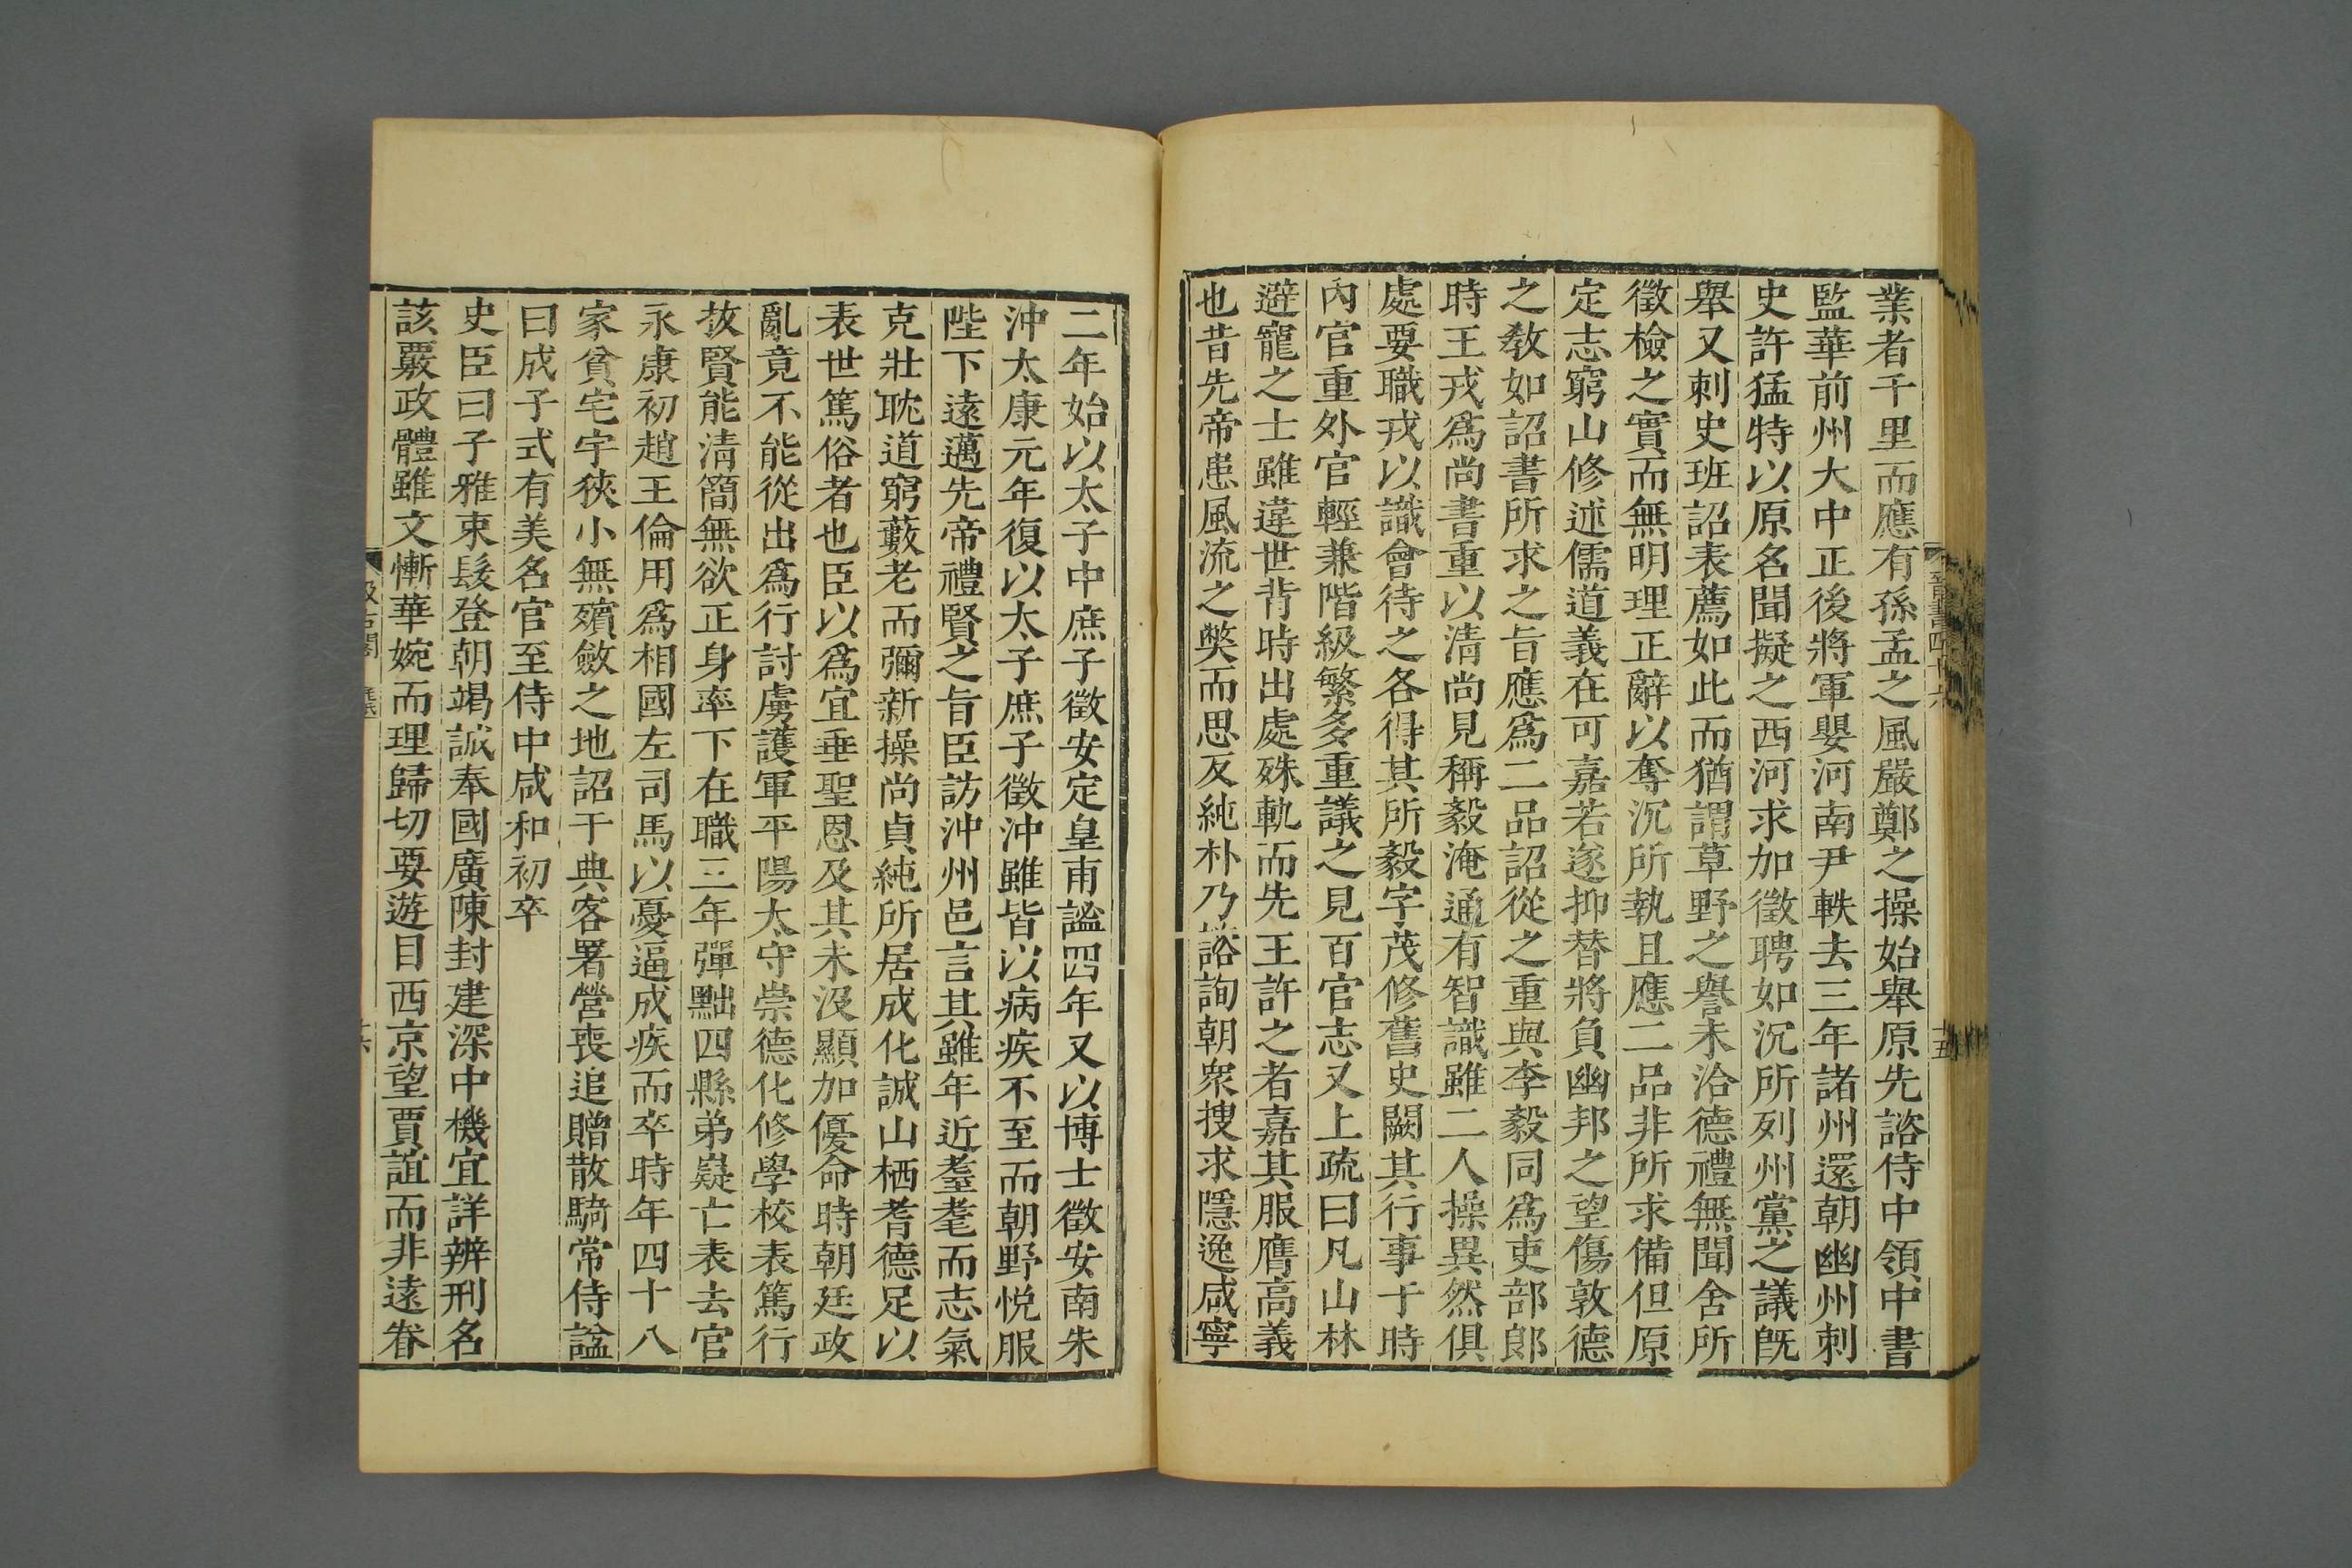 業者千里而應有孫孟之風嚴鄭之操始舉原先諮侍中領中書
監華前州大中正後將軍嬰河南尹軼去三年諸州還朝幽州刺
史許猛特以原名聞擬之西河求加徵聘如沉所列州黨之議旣
舉又刺史班詔表薦如此而猶謂草野之譽未洽德禮無聞舍所
徵檢之實而無明理正辭以奪沉所執且應二品非所求備但原
定志窮山修述儒道義在可嘉若遂抑替將負幽邦之望傷敦德
之敎如詔書所求之旨應爲二品詔從之重與李毅同爲吏部郎
時王戎爲尚書重以清尚見稱毅淹通有智識雖二人操異然俱
處要職戎以識會待之各得其所毅字茂修舊史闕其行事于時
內官重外官輕兼階級繁多重議之見百官志又上疏曰凡山林
避寵之士雖違世背時出處殊軌而先王許之者嘉其服膺高義
也昔先帝患風流之獘而思反純朴乃諮詢朝衆搜求隱逸咸寧
晉書四十六
十五
二年始以太子中庶子徵安定皇甫謐四年又以博士徵安南朱
沖太康元年復以太子庶子徵沖雖皆以病疾不至而朝野悅服
陛下遠邁先帝禮賢之旨臣訪沖州邑言其雖年近耋耄而志氣
克壯耽道窮藪老而彌新操尚貞純所居成化誠山栖耆德足以
表世篤俗者也臣以爲宜垂聖恩及其未沒顯加優命時朝廷政
亂竟不能從出爲行討虜護軍平陽太守崇德化修學校表篤行
拔賢能清簡無欲正身率下在職三年彈黜四縣弟嶷亡表去官
永康初趙王倫用爲相國左司馬以憂逼成疾而卒時年四十八
家貧宅宇狹小無殯斂之地詔于典客署營喪追贈散騎常侍諡
曰成子式有美名官至侍中咸和初卒
史臣曰子雅束髮登朝竭誠奉國廣陳封建深中機宜詳辨刑名
該覈政體雖文慚華婉而理歸切要遊目西京望賈誼而非遠眷
汲古閣
十六